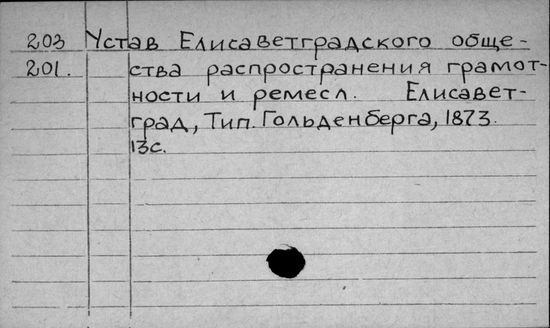 203 Устав Елисаветградского обще-
201. ства распространения грамот-
ности и ремесл. Елисавет-
град, Тип. Гольденберга, 1873.
13с.